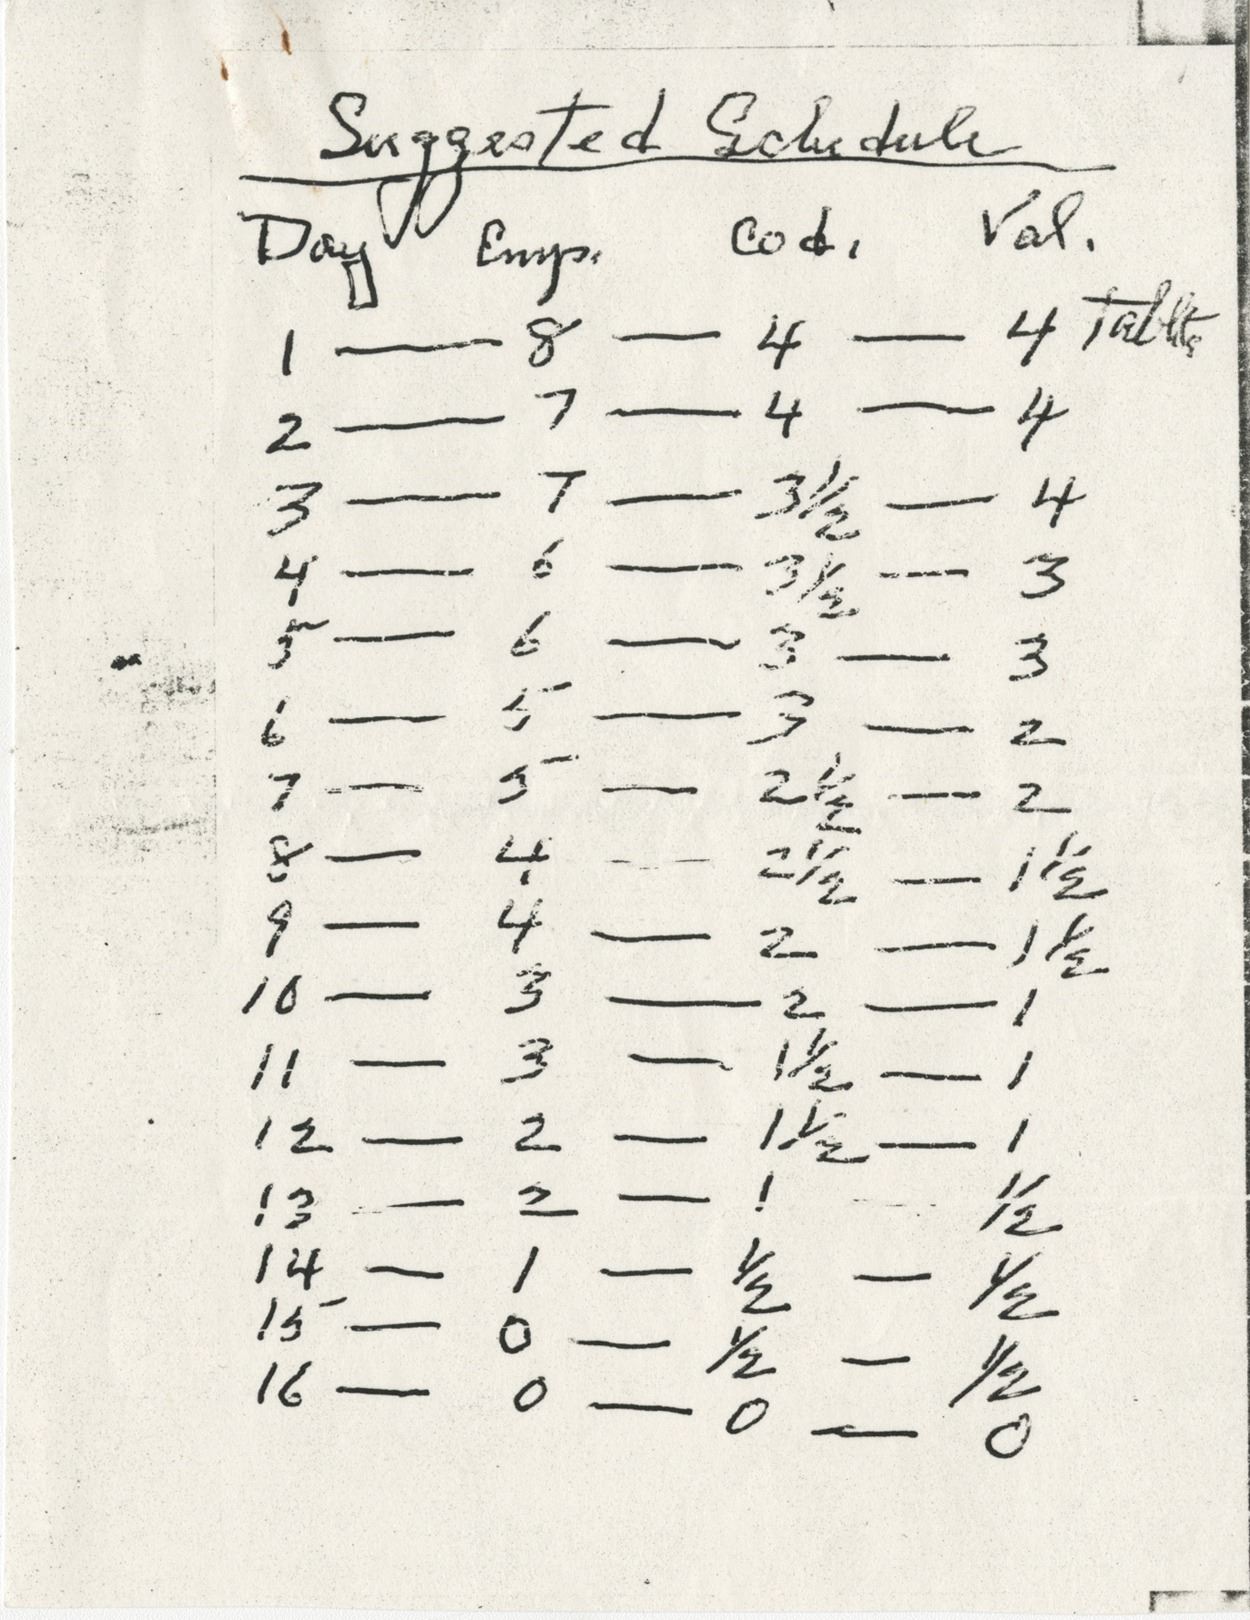 Suggested Schedule
Day Emp. Cod. Val.
1 — 8 — 4 — 4 Tablts
2 — 7 — 4 — 4
3 — 7 — 3 1/2 — 4
4 — 6 — 3 1/2 — 3
5 — 6 — 3 — 3
6 — 5 — 3 — 2
7 — 5 — 2 1/2 — 2
8 — 4 — 2 1/2 — 1 1/2
9 — 4 — 2 — 1 1/2
10 — 3 — 2 — 1
11 — 3 — 1 1/2 — 1
12 — 2 — 1 1/2 — 1
13 — 2 — 1 — 1/2
14 — 1 — 1/2 — 1/2
15 — 0 — 1/2 — 1/2
16 — 0 — 0 — 0